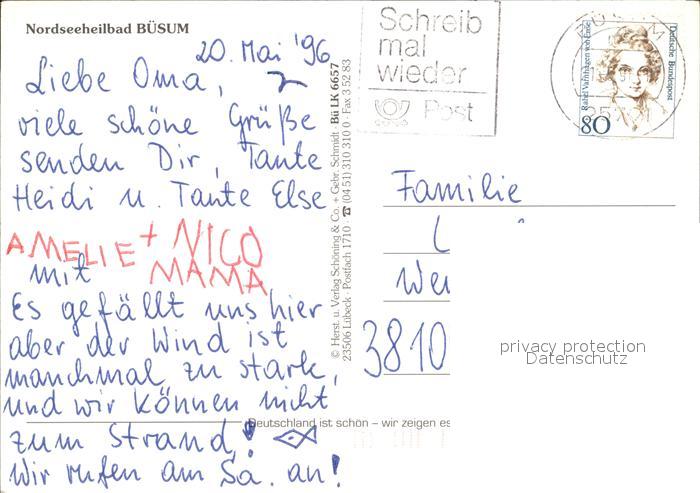 Nordseeheilbad BÜSUM
20. Mai '96
Liebe Oma,
viele schöne Grüße
senden Dir, Tante
Heidi u. Tante Else
AMELIE + NICO
mit MAMA
Es gefällt uns hier
aber der Wind ist
manchmal zu stark,
und wir können nicht
zum Strand!
Wir rufen am Sa. an!
Deutschland ist schön – wir zeigen es
© Herst. u. Verlag Schöning & Co. + Gebr. Schmidt · Bü LK 6657
23506 Lübeck · Postfach 1710 ☎ (04 51) 310 310 0 · Fax 3 52 83
Schreib
mal
wieder
Post
Rahel Varnhagen von Ense
Deutsche Bundespost
80
Familie
3810
privacy protection
Datenschutz